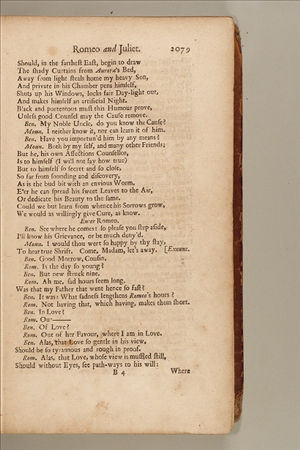 Romeo and Juliet. 2079
Should, in the farthest East, begin to draw
The shady Curtains from Aurora's Bed,
Away from light steals home my heavy Son,
And private in his Chamber pens himself,
Shuts up his Windows, locks fair Day-light out,
And makes himself an artificial Night.
Black and portentous must this Humour prove,
Unless good Counsel may the Cause remove.
Ben. My Noble Uncle, do you know the Cause?
Moun. I neither know it, nor can learn of him.
Ben. Have you importun'd him by any means?
Moun. Both by my self, and many other Friends;
But he, his own Affections Counsellor,
Is to himself (I will not say how true)
But to himself so secret and so close,
So far from sounding and discovery,
As is the bud bit with an envious Worm,
E'er he can spread his sweet Leaves to the Air,
Or dedicate his Beauty to the same.
Could we but learn from whence his Sorrows grow,
We would as willingly give Cure, as know.
Enter Romeo.
Ben. See where he comes: so please you step aside,
I'll know his Grievance, or be much deny'd.
Moun. I would thou wert so happy by thy stay,
To hear true Shrift. Come, Madam, let's away. [Exeunt.
Ben. Good Morrow, Cousin.
Rom. Is the day so young?
Ben. But new struck nine.
Rom. Ah me, sad hours seem long.
Was that my Father that went hence so fast?
Ben. It was: What sadness lengthens Romeo's hours?
Rom. Not having that, which having, makes them short.
Ben. In Love?
Rom. Out——
Ben. Of Love?
Rom. Out of her Favour, where I am in Love.
Ben. Alas, that Love so gentle in his view,
Should be so tyrannous and rough in proof.
Rom. Alas, that Love, whose view is muffled still,
Should without Eyes, see path-ways to his will:
B 4 Where